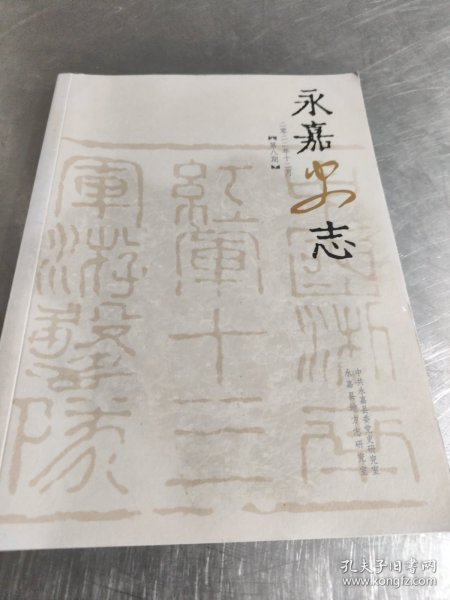 永嘉史志
【第八期】
中共永嘉县委党史研究室
永嘉县地方志研究室
紅軍十三
軍游擊隊
孔夫子旧书网
www.kongfz.com